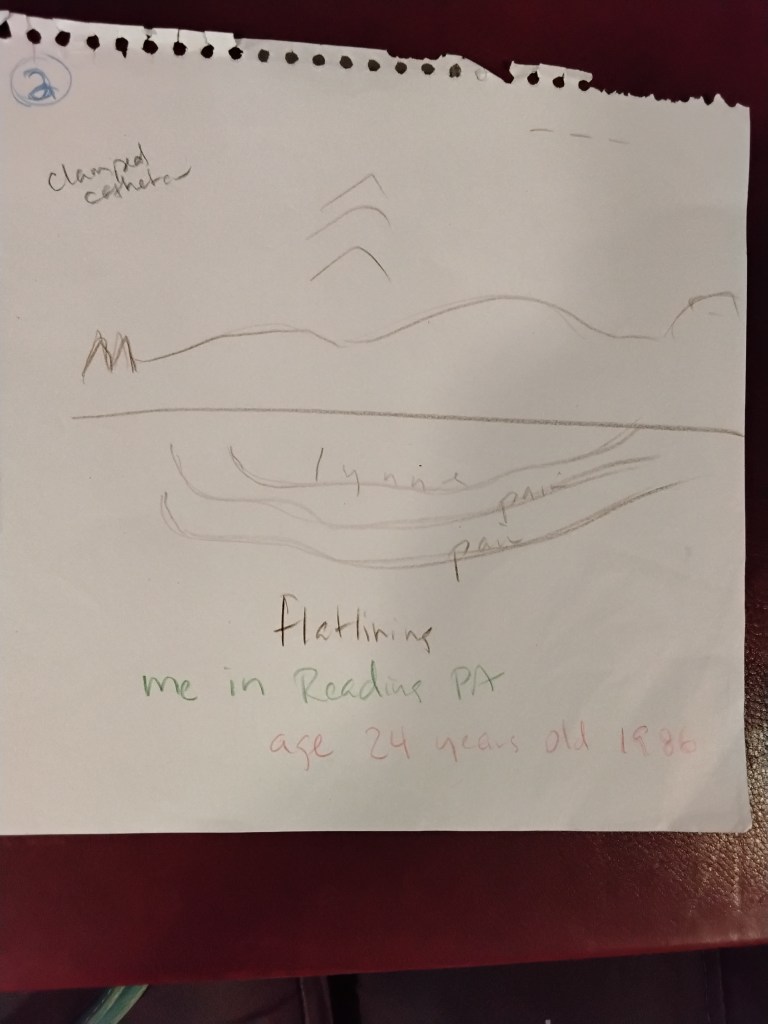 2
clamped
catheter
lynne
pain
pain
flatlining
me in Reading PA
age 24 years old 1986